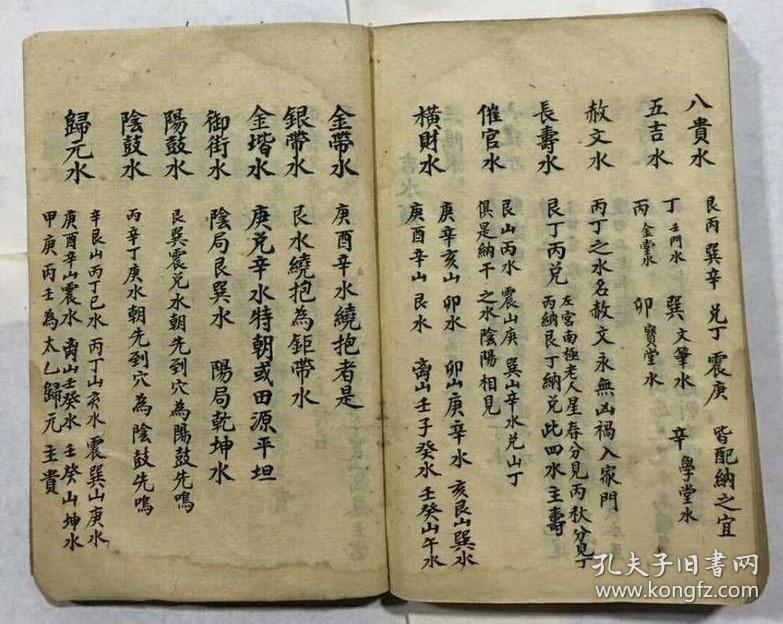 八貴水 艮丙 巽辛 兑丁 震庚 皆配納之宜
五吉水 丁壬門水 巽文筆水 辛學堂水
丙金堂水 卯寶堂水
赦文水 丙丁之水名赦文永無凶禍入家門
長壽水 艮丁丙兑 左宮南極老人星春分見丙秋分見丁
丙納艮丁納兑此四水主壽
催官水 艮山丙水 震山庚 巽山辛水兑山丁
俱是納干之水陰陽相見
橫財水 庚辛亥山卯水 卯山庚辛水 亥艮山巽水
庚酉辛山艮水 离山壬子癸水 壬癸山午水
金帶水 庚酉辛水繞抱者是
銀帶水 艮水繞抱為鉅帶水
金堦水 庚兑辛水特朝或田源平坦
御街水 陰局艮巽水 陽局乾坤水
陽鼓水 艮巽震兑水朝先到穴為陽鼓先鳴
陰鼓水 丙辛丁庚水朝先到穴為陰鼓先鳴
歸元水 辛艮山丙丁巳水 丙丁山亥水 震巽山庚水
庚酉辛山震水 离山壬癸水 壬癸山坤水
甲庚丙壬為太乙歸元主貴
孔夫子旧书网
www.kongfz.com